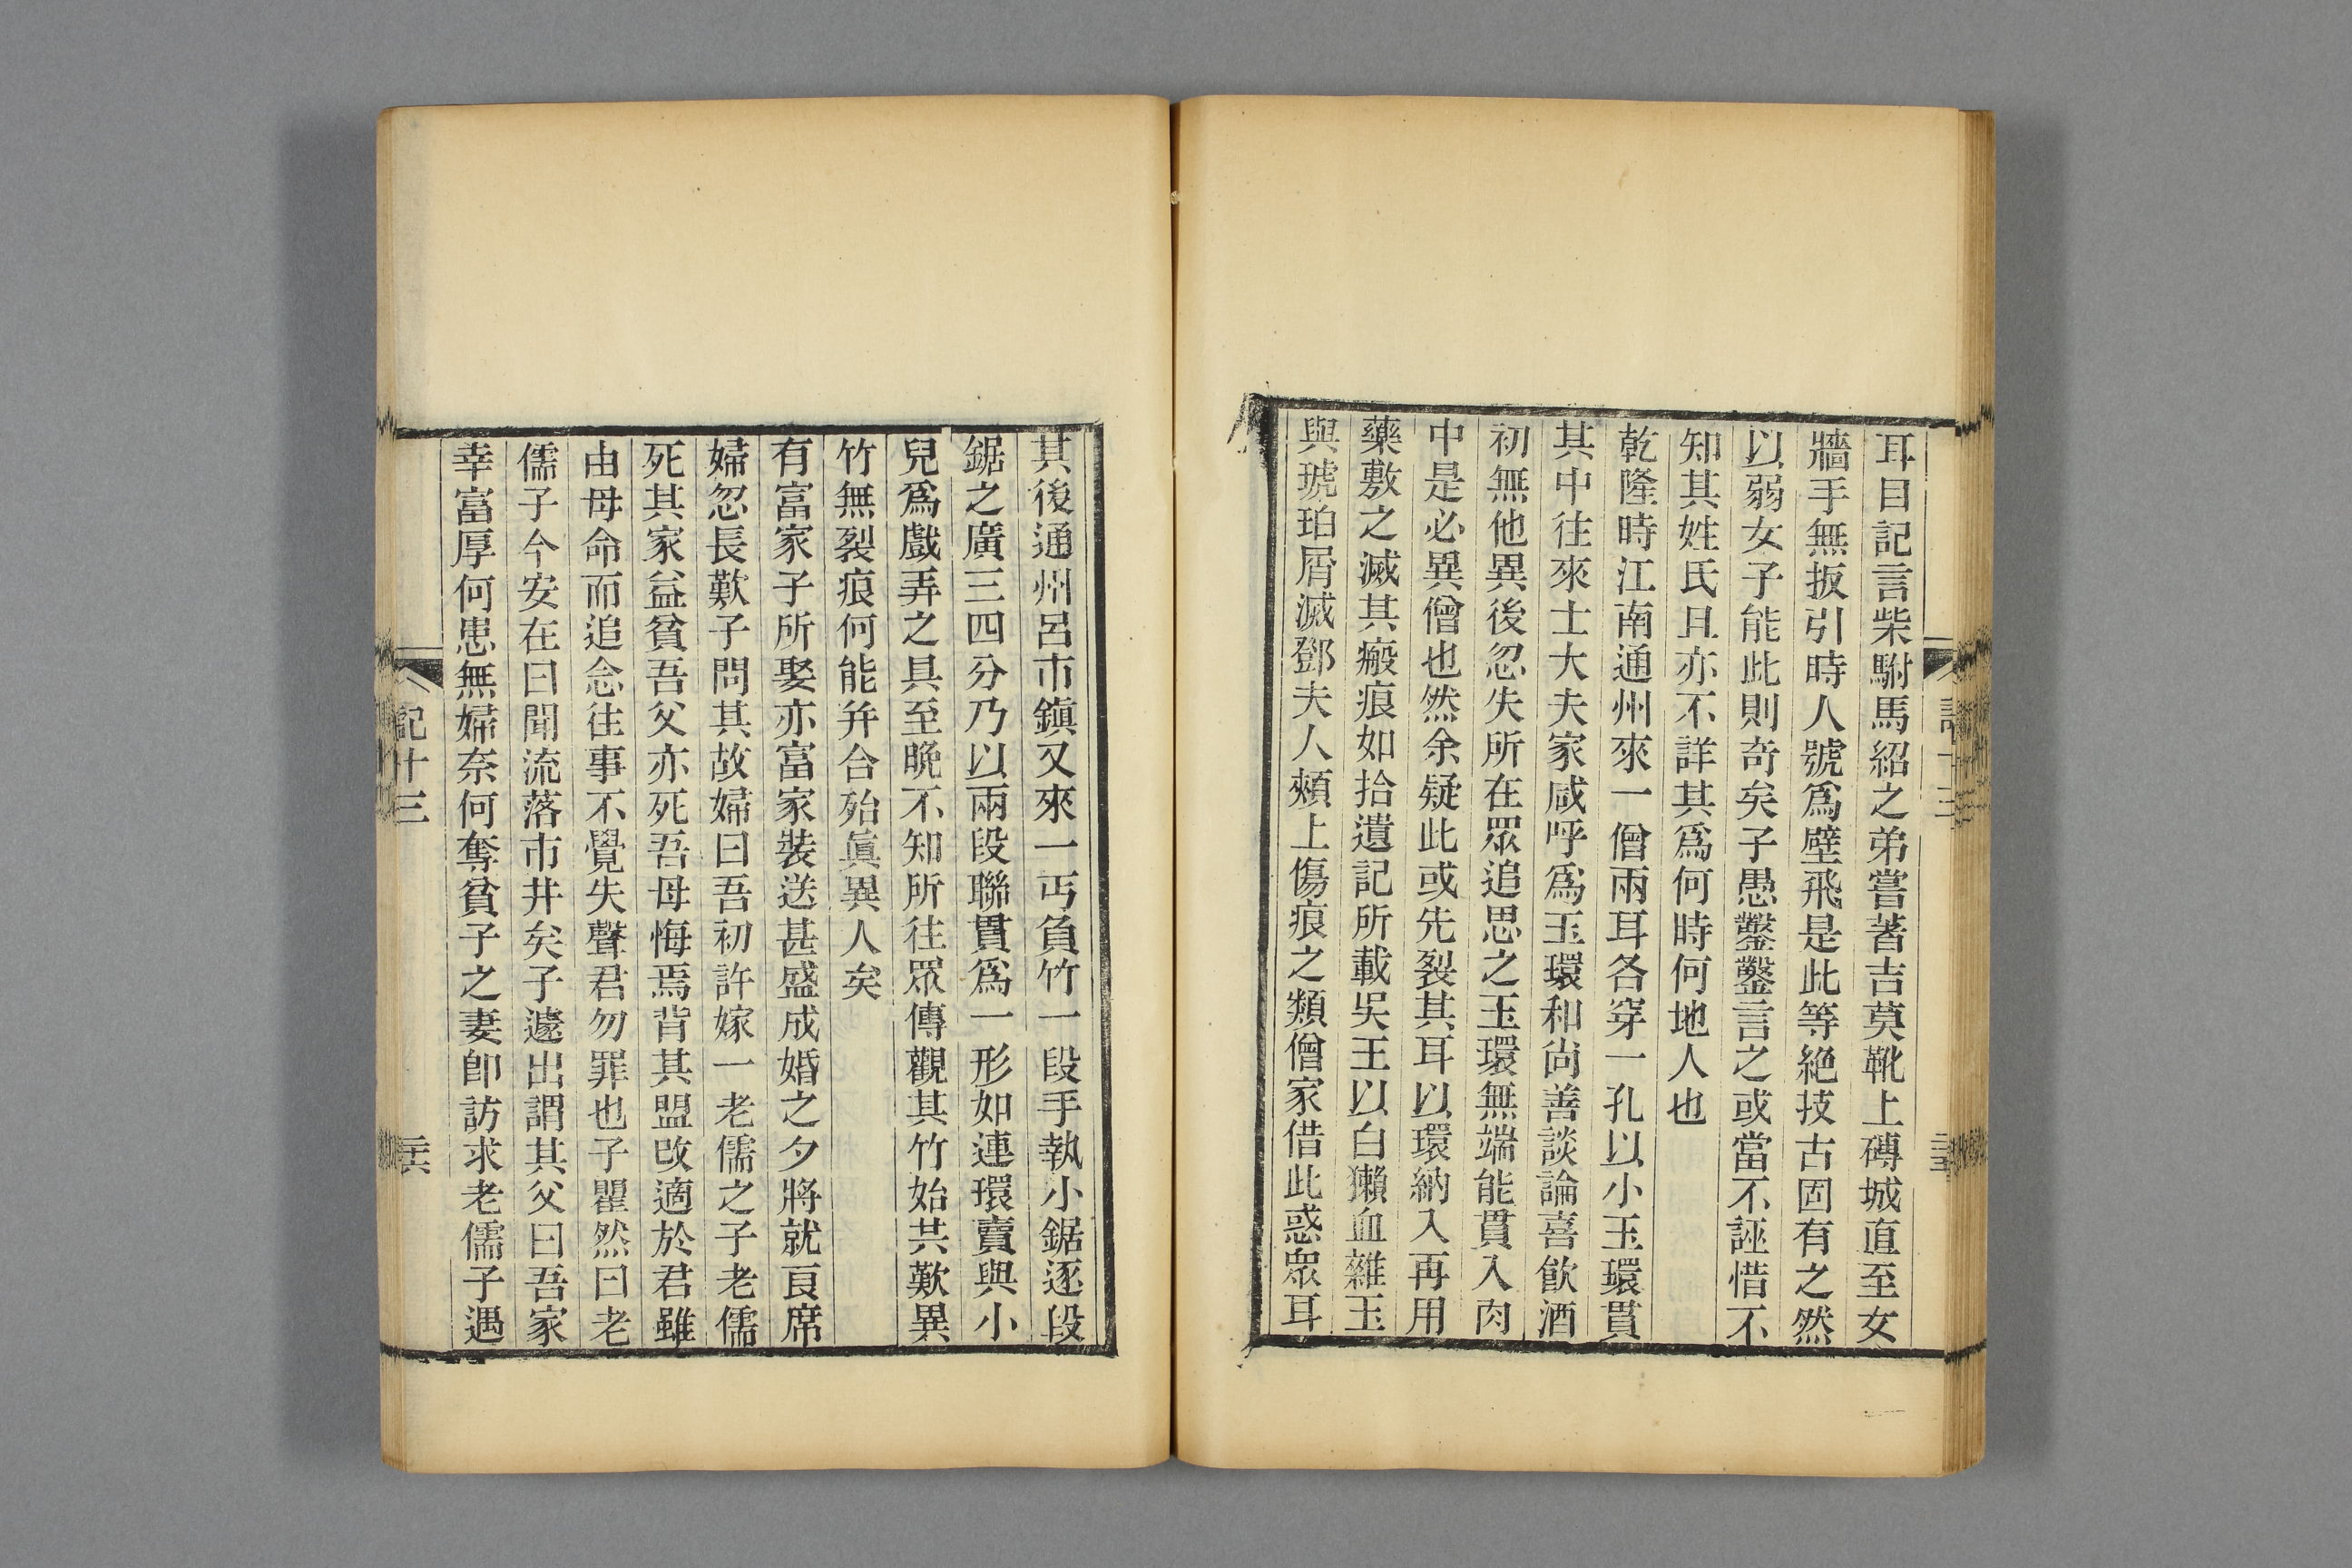 耳目記言柴駙馬紹之弟嘗著吉莫靴上磚城直至女
牆手無扳引時人號爲壁飛是此等絕技古固有之然
以弱女子能此則奇矣子愚鑿鑿言之或當不誣惜不
知其姓氏且亦不詳其爲何時何地人也
乾隆時江南通州來一僧兩耳各穿一孔以小玉環貫
其中往來士大夫家咸呼爲玉環和尚善談論喜飮酒
初無他異後忽失所在眾追思之玉環無端能貫入肉
中是必異僧也然余疑此或先裂其耳以環納入再用
藥敷之滅其瘢痕如拾遺記所載吳王以白獺血雜玉
與琥珀屑滅鄧夫人頰上傷痕之類僧家借此惑眾耳
其後通州呂市鎭又來一丐負竹一段手執小鋸逐段
鋸之廣三四分乃以兩段聯貫爲一形如連環賣與小
兒爲戲弄之具至晚不知所往眾傳觀其竹始共歎異
竹無裂痕何能并合殆眞異人矣
有富家子所娶亦富家裝送甚盛成婚之夕將就㠯席
婦忽長歎子問其故婦曰吾初許嫁一老儒之子老儒
死其家益貧吾父亦死吾母悔焉背其盟改適於君雖
由母命而追念往事不覺失聲君勿罪也子瞿然曰老
儒子今安在曰聞流落市井矣子遽出謂其父曰吾家
幸富厚何患無婦奈何奪貧子之妻卽訪求老儒子遇
記十三